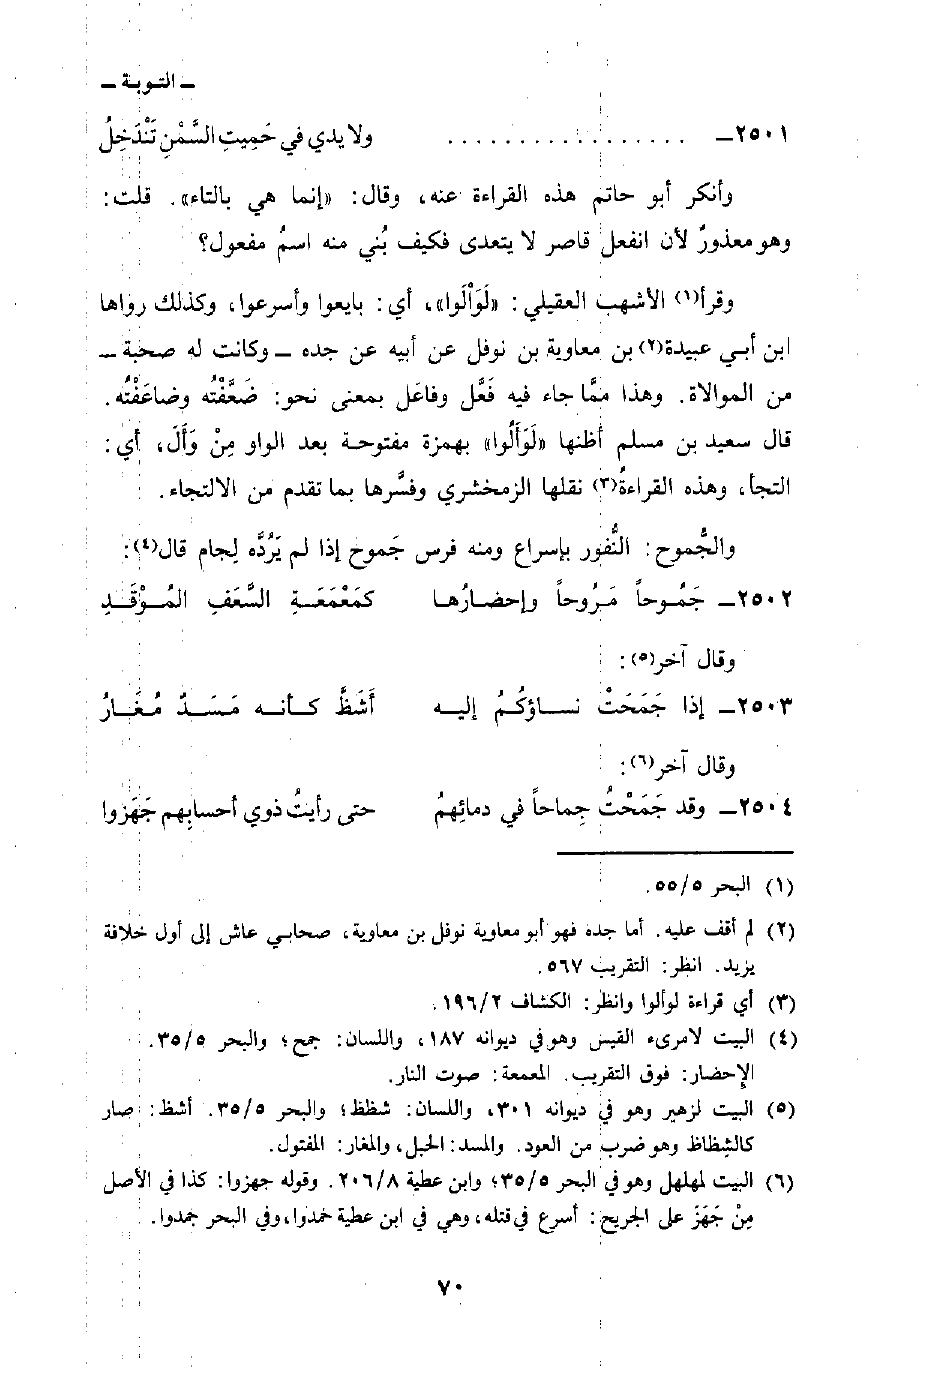 ـ التـوبـة ـ
٢٥٠١ـ . . . . . . . . . . . . . . . . . ولا يدي في حَميتِ السَّمْنِ تَنْدَخِلُ
وأنكر أبو حاتم هذه القراءة عنه، وقال: «إنما هي بالتاء». قلت:
وهو معذورٌ لأن انفعل قاصر لا يتعدى فكيف بُني منه اسمُ مفعول؟
وقرأ(١) الأشهب العقيلي: «لَوَأْلَوا»، أي: بايعوا وأسرعوا، وكذلك رواها
ابن أبي عبيدة(٢) بن معاوية بن نوفل عن أبيه عن جده ـ وكانت له صحبة ـ
من الموالاة. وهذا ممَّا جاء فيه فَعَّل وفاعَل بمعنى نحو: ضَعَّفْتُه وضاعَفْتُه.
قال سعيد بن مسلم أظنها «لَوَأَلُوا» بهمزة مفتوحة بعد الواو مِنْ وَأَلَ، أي:
التجأ، وهذه القراءةُ(٣) نقلها الزمخشري وفسَّرها بما تقدم من الالتجاء.
والجُموح: النُّفور بإسراع ومنه فرس جَموح إذا لم يَرُدَّه لِجام قال(٤):
٢٥٠٢ـ جَمُـوحاً مَـرُوحاً وإحضـارُهـا كمَعْمَعَـةِ السَّعَفِ المُـوْقَـدِ
وقال آخر(٥):
٢٥٠٣ـ إذا جَمَحَتْ نسـاؤكُـمُ إليـه أَشَظَّ كـأنـه مَسَـدٌ مُغـارُ
وقال آخر(٦):
٢٥٠٤ـ وقد جَمَحْتُ جِماحاً في دمائِهمُ حتى رأيتُ ذوي أحسابِهم جَهَزوا
(١) البحر ٥/٥٥.
(٢) لم أقف عليه. أما جده فهو أبو معاوية نوفل بن معاوية، صحابي عاش إلى أول خلافة
يزيد. انظر: التقريب ٥٦٧.
(٣) أي قراءة لوألوا وانظر: الكشاف ١٩٦/٢.
(٤) البيت لامرىء القيس وهو في ديوانه ١٨٧، واللسان: جمح؛ والبحر ٣٥/٥.
الإحضار: فوق التقريب. المعمعة: صوت النار.
(٥) البيت لزهير وهو في ديوانه ٣٠١، واللسان: شظظ؛ والبحر ٣٥/٥. أشظ: صار
كالشِظاظ وهو ضرب من العود. والمسد: الحبل، والمغار: المفتول.
(٦) البيت لمهلهل وهو في البحر ٣٥/٥؛ وابن عطية ٢٠٦/٨. وقوله جهزوا: كذا في الأصل
مِنْ جَهَزَ على الجريح: أسرع في قتله، وهي في ابن عطية خمدوا، وفي البحر جمدوا.
٧٠